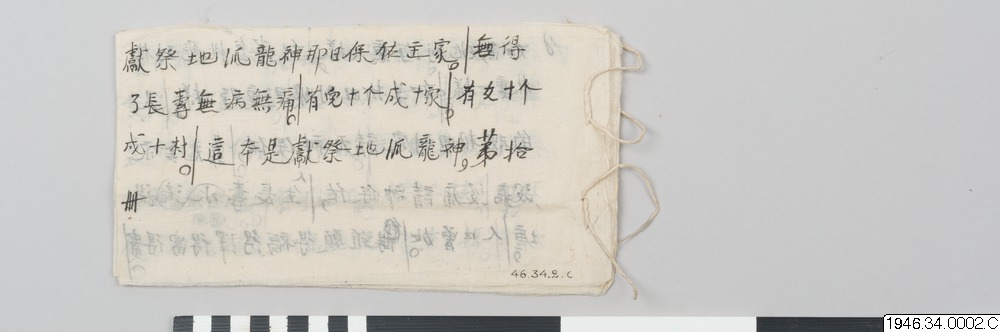 獻祭地泒龍神那日保佑主家。無得
了長壽無病無痛。有兒十个成十家。有女十个
成十村。這本是獻祭地泒龍神第拾
冊
46.34.2.c
1946.34.0002.C